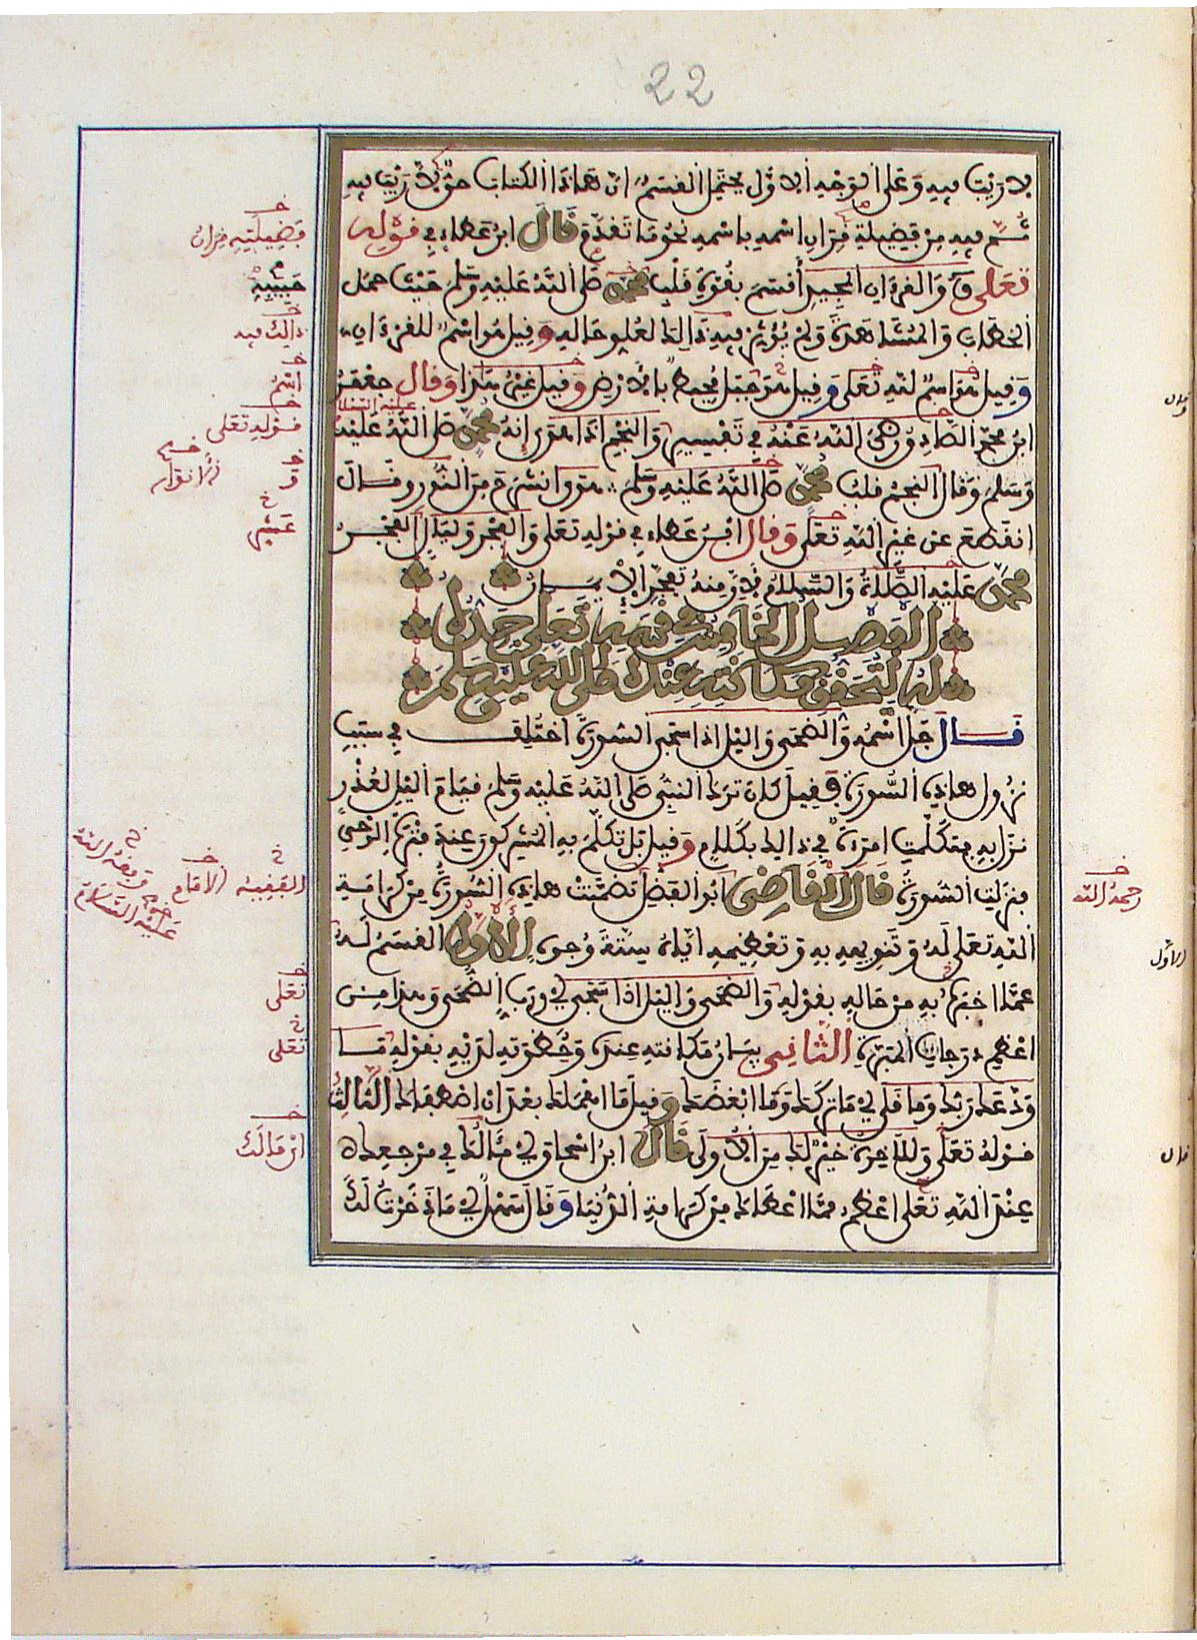 22
لا ريب فيه وعلى الوجه الاول يحتمل القسم ان هذا الكتاب حق لا ريب فيه
ثم فيه من فضيلة قران اسمه باسمه نحو ما تقدم قال ابن عطاء في قوله
تعلى ق والقرءان المجيد أقسم بقوة قلب محمد صلى الله عليه وسلم حيث حمل
الخطاب والمشاهدة ولم يؤثر فيه ذالك لعلو حاله وقيل هو اسم للقرءان
وقيل هو اسم لله تعلى وقيل هو جبل محيط بالارض وقيل غير هذا وقال جعفر
ابن محمد الصادق رضى الله عنه في تفسير والنجم اذا هوى إنه محمد صلى الله عليه
وسلم وقال النجم قلب محمد صلى الله عليه وسلم هوى انشرح من النور وقال
انقطع عن غير الله تعلى وقال ابن عطاء في قوله تعلى والفجر وليال الفجر
محمد عليه الصلاة والسلام لان منه تفجر الايمان
الفصل الخامس في قسمه تعلى جده
له لتحقق مكانته عنده صلى الله عليه وسلم
قال جل اسمه والضحى واليل اذا سجى السورة اختلف في سبب
نزول هاذه السورة فقيل كان ترك النبي صلى الله عليه وسلم قيام اليل لعذر
نزل به فتكلمت امرأة في ذالك بكلام وقيل بل تكلم به المشركون عند فترة الوحي
فنزلت السورة قال القاضى ابو الفضل تضمنت هاذه السورة من كرامة
الله تعلى له وتنويهه به وتعظيمه اياه ستة وجوه الأول القسم له
عما اخبره به من حاله بقوله والضحى واليل اذا سجى اي ورب الضحى وهذا من
اعظم درجات المبرة الثانى بيان مكانته عنده وحظوته لديه بقوله ما
ودعك ربك وما قلى اي ما تركك وما ابغضك وقيل ما اهملك بعد ان اصطفاك الثالث
قوله تعلى وللاخرة خير لك من الاولى قال ابن اسحاق اي مالك في مرجعك
عند الله تعلى اعظم مما اعطاك من كرامة الدنيا وقال سهل اي ما ذخرت لك
فضيلته قران
حبيبه
ذالك فيه
اسم
عليه السلام
قوله تعلى
الانوار
الفقيه الامام
وفقه الله
عليه السلام
رحمه الله
الاول
تعلى
تعلى
قال